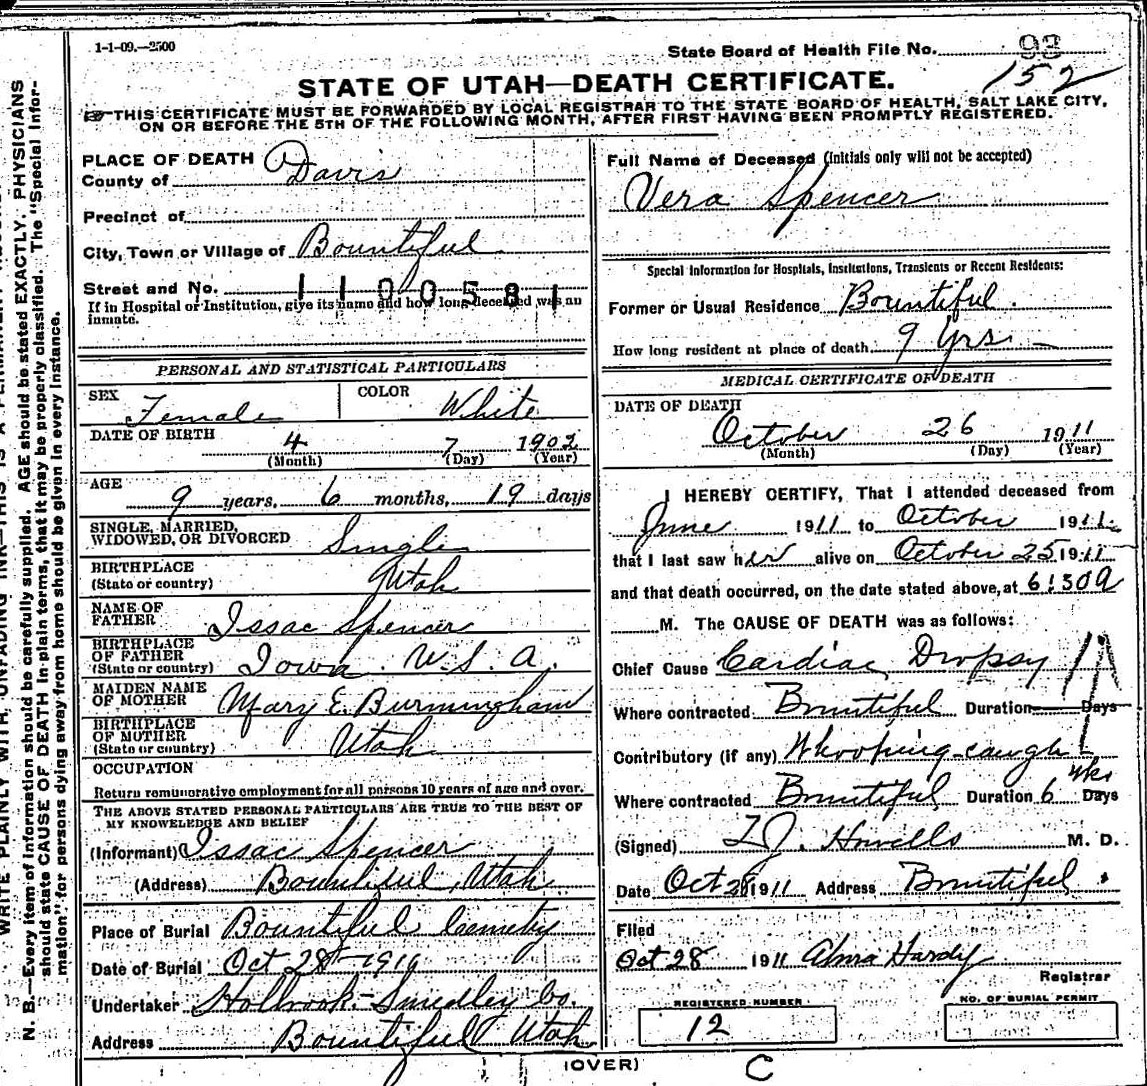 1-1-09.—2500
State Board of Health File No. 93
152
STATE OF UTAH—DEATH CERTIFICATE.
THIS CERTIFICATE MUST BE FORWARDED BY LOCAL REGISTRAR TO THE STATE BOARD OF HEALTH, SALT LAKE CITY,
ON OR BEFORE THE 5TH OF THE FOLLOWING MONTH, AFTER FIRST HAVING BEEN PROMPTLY REGISTERED.
PLACE OF DEATH
County of Davis
Precinct of
City, Town or Village of Bountiful
Street and No. 1100581
If in Hospital or Institution, give its name and how long deceased was an
inmate.
PERSONAL AND STATISTICAL PARTICULARS
SEX Female COLOR White
DATE OF BIRTH 4 7 1902
(Month) (Day) (Year)
AGE
9 years, 6 months, 19 days
SINGLE, MARRIED,
WIDOWED, OR DIVORCED Single
BIRTHPLACE
(State or country) Utah
NAME OF
FATHER Issac Spencer
BIRTHPLACE
OF FATHER
(State or country) Iowa. U.S.A.
MAIDEN NAME
OF MOTHER Mary E. Burmingham
BIRTHPLACE
OF MOTHER
(State or country) Utah
OCCUPATION
Return remunerative employment for all persons 10 years of age and over.
THE ABOVE STATED PERSONAL PARTICULARS ARE TRUE TO THE BEST OF
MY KNOWLEDGE AND BELIEF
(Informant) Issac Spencer
(Address) Bountiful, Utah
Place of Burial Bountiful Cemety
Date of Burial Oct 28 - 1910
Undertaker Holbrook-Smedley Co.
Address Bountiful Utah
Full Name of Deceased (Initials only will not be accepted)
Vera Spencer
Special Information for Hospitals, Institutions, Transients or Recent Residents:
Former or Usual Residence Bountiful.
How long resident at place of death 9 Yrs.
MEDICAL CERTIFICATE OF DEATH
DATE OF DEATH
October 26 1911
(Month) (Day) (Year)
I HEREBY CERTIFY, That I attended deceased from
June 1911 to October 1911
that I last saw her alive on October 25 1911
and that death occurred, on the date stated above, at 6:30 a
M. The CAUSE OF DEATH was as follows:
Chief Cause Cardiac Dropsy
Where contracted Bountiful Duration Days
Contributory (if any) Whooping-caugh
Where contracted Bountiful Duration 6 wks Days
(Signed) L.J. Howells M. D.
Date Oct 28 1911 Address Bountiful
Filed
Oct 28 1911 Alma Hardy
Registrar
REGISTERED NUMBER
12
NO. OF BURIAL PERMIT
(OVER)
C
N. B.—Every item of information should be carefully supplied. AGE should be stated EXACTLY. PHYSICIANS
should state CAUSE OF DEATH in plain terms, that it may be properly classified. The "Special Infor-
mation" for persons dying away from home should be given in every instance.